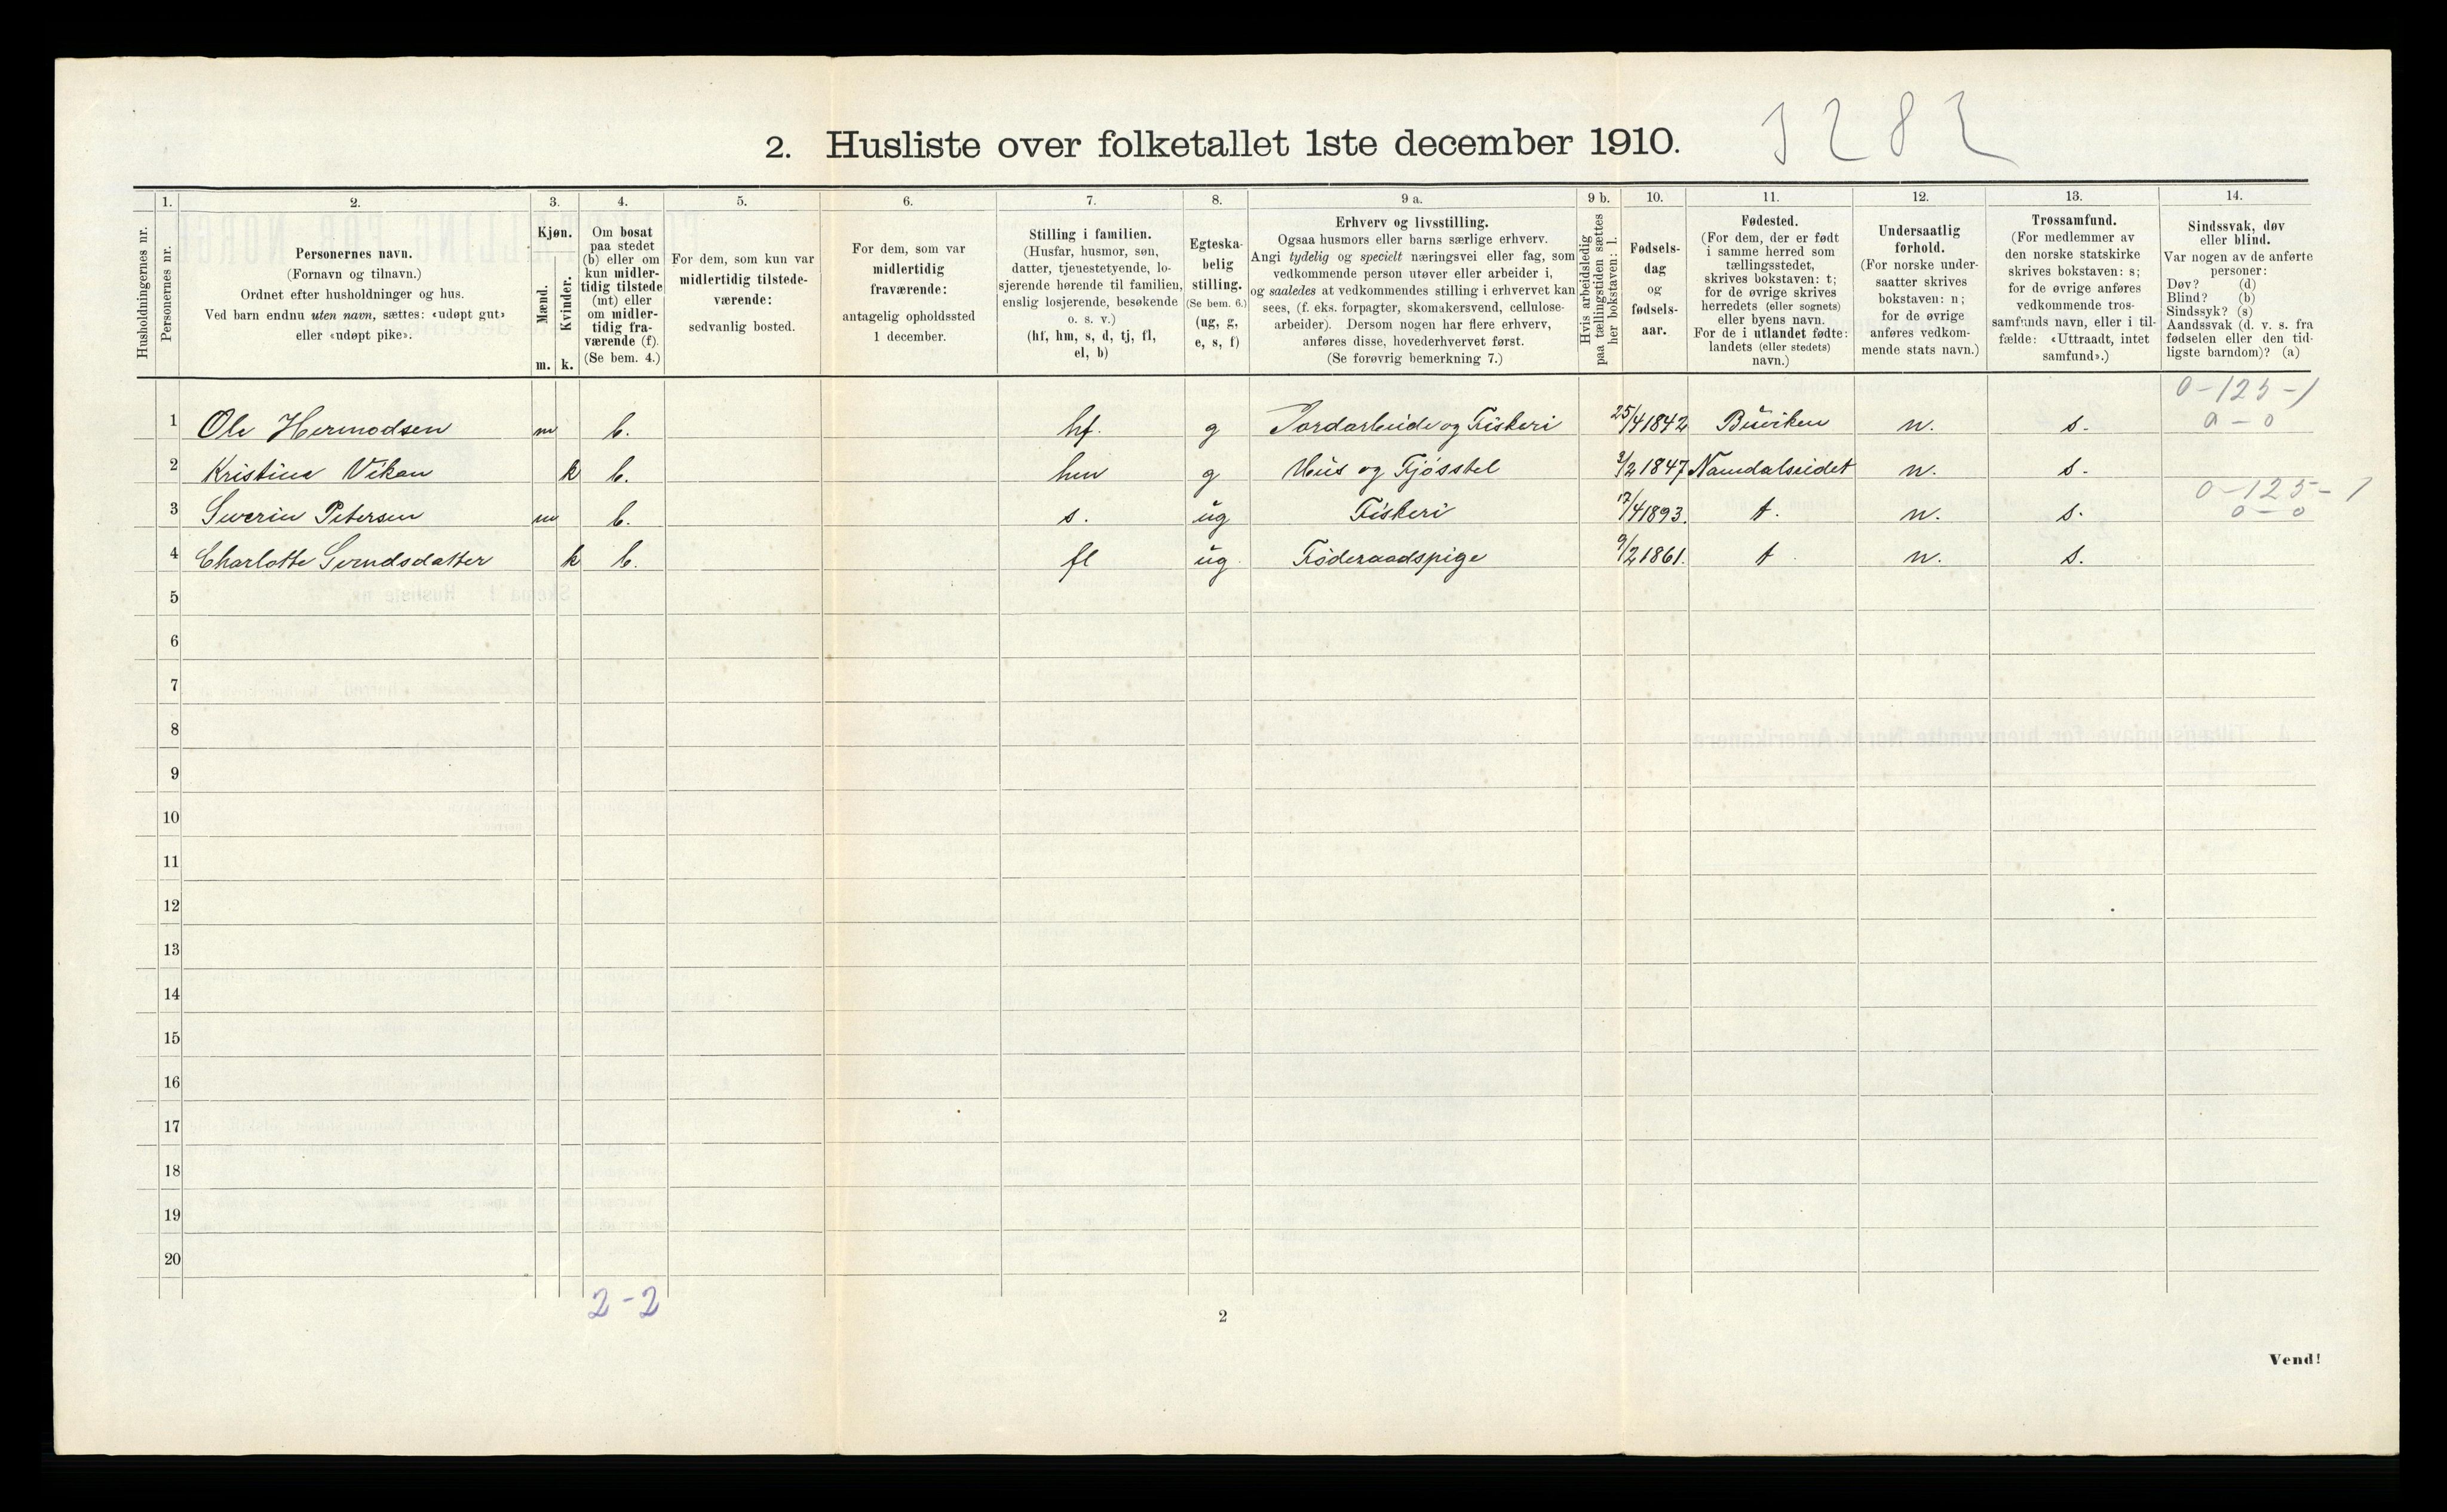 2. Husliste over folketallet 1ste december 1910.
3282
Husholdningernes nr.
1.
Personernes nr.
2.
Personernes navn.
(Fornavn og tilnavn.)
Ordnet efter husholdninger og hus.
Ved barn endnu uten navn, sættes: «udøpt gut»
eller «udøpt pike».
3.
Kjøn.
Mænd.
Kvinder.
m. k.
4.
Om bosat
paa stedet
(b) eller om
kun midler-
tidig tilstede
(mt) eller
om midler-
tidig fra-
værende (f).
(Se bem. 4.)
5.
For dem, som kun var
midlertidig tilstede-
værende:
sedvanlig bosted.
6.
For dem, som var
midlertidig
fraværende:
antagelig opholdssted
1 december.
7.
Stilling i familien.
(Husfar, husmor, søn,
datter, tjenestetyende, lo-
sjerende hørende til familien,
enslig losjerende, besøkende
o. s. v.)
(hf, hm, s, d, tj, fl,
el, b)
8.
Egteska-
belig
stilling.
(Se bem. 6.)
(ug, g,
e, s, f)
9 a.
Erhverv og livsstilling.
Ogsaa husmors eller barns særlige erhverv.
Angi tydelig og specielt næringsvei eller fag, som
vedkommende person utøver eller arbeider i,
og saaledes at vedkommendes stilling i erhvervet kan
sees, (f. eks. forpagter, skomakersvend, cellulose-
arbeider). Dersom nogen har flere erhverv,
anføres disse, hovederhvervet først.
(Se forøvrig bemerkning 7.)
9 b.
Hvis arbeidsledig
paa tællingstiden sættes
her bokstaven: l.
10.
Fødsels-
dag
og
fødsels-
aar.
11.
Fødested.
(For dem, der er født
i samme herred som
tællingsstedet,
skrives bokstaven: t;
for de øvrige skrives
herredets (eller sognets)
eller byens navn.
For de i utlandet fødte:
landets (eller stedets)
navn.)
12.
Undersaatlig
forhold.
(For norske under-
saatter skrives
bokstaven: n;
for de øvrige
anføres vedkom-
mende stats navn.)
13.
Trossamfund.
(For medlemmer av
den norske statskirke
skrives bokstaven: s;
for de øvrige anføres
vedkommende tros-
samfunds navn, eller i til-
fælde: «Uttraadt, intet
samfund».)
14.
Sindssvak, døv
eller blind.
Var nogen av de anførte
personer:
Døv? (d)
Blind? (b)
Sindssyk? (s)
Aandssvak (d. v. s. fra
fødselen eller den tid-
ligste barndom)? (a)
0-125-1
1 Ole Hermodsen m b. hf. g Jordarbeide og Fiskeri 25/4 1842 Büviken n. s. 0-0
2 Kristina Vikan k b. hm g Hüs og Fjösstel 3/2 1847 Namdalseidet n. s.
0-125-1
3 Severin Petersen m b. s. üg Fiskeri 17/4 1893. t. n. s. 0-0
4 Charlotte Svendsdatter k b. fl üg Föderaadspige 9/2 1861. t n. s.
5
6
7
8
9
10
11
12
13
14
15
16
17
18
19
20
2-2
2
Vend!